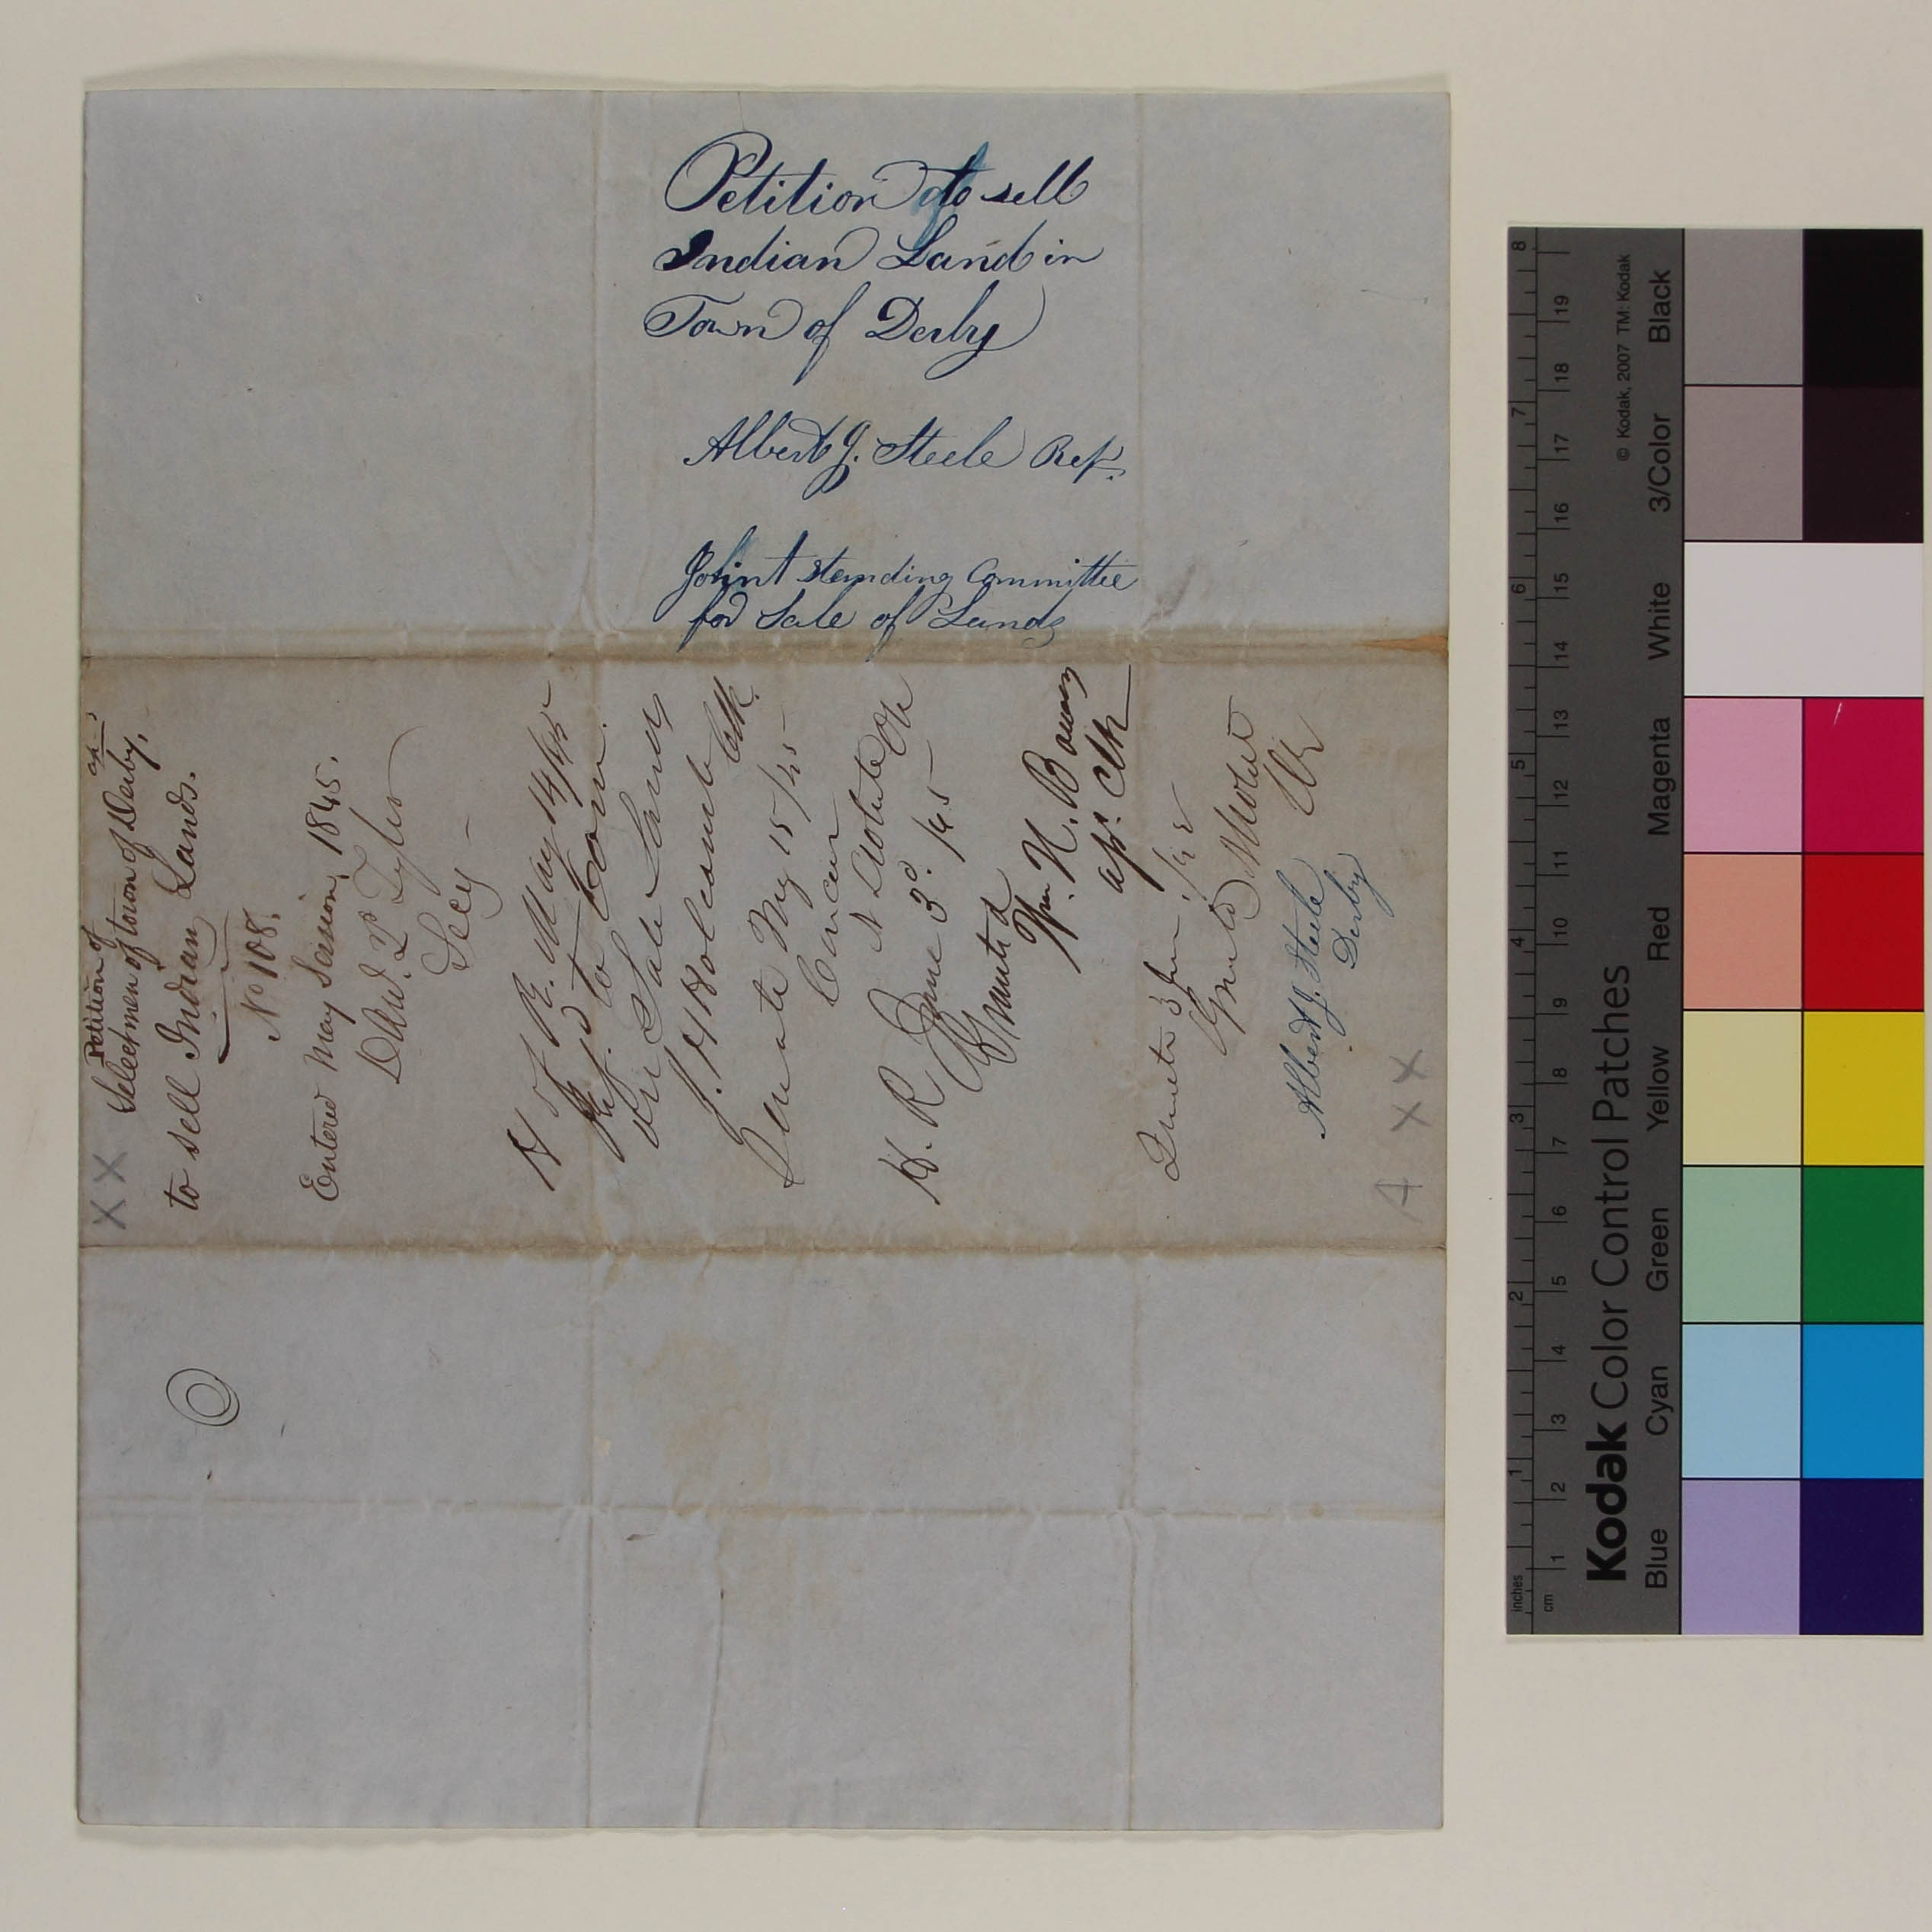 Petition to sell
Indian Land in
Town of Derby
Albert J. Steele Rep.
Joint standing Committee
for Sale of Lands
Petition of
Selectmen of town of Derby,
to sell Indian Lands.
No 108.
Entered May Session, 1845.
Danl. P. Tyler
Secy
H of R. May 14/45
Refd to Com.
on Sale Lands
J. H Holcomb Clk.
Senate May 15/45
Concur
H. R June 3d. /45
Granted
Wm. N. Bowers
ast. Clk
Senate 3 June /45
Granted
Clk
Albert J. Steele
Derby
XX
4 XX
© Kodak, 2007 TM: Kodak
Kodak Color Control Patches
Blue Cyan Green Yellow Red Magenta White 3/Color Black
inches 1 2 3 4 5 6 7 8
cm 1 2 3 4 5 6 7 8 9 10 11 12 13 14 15 16 17 18 19